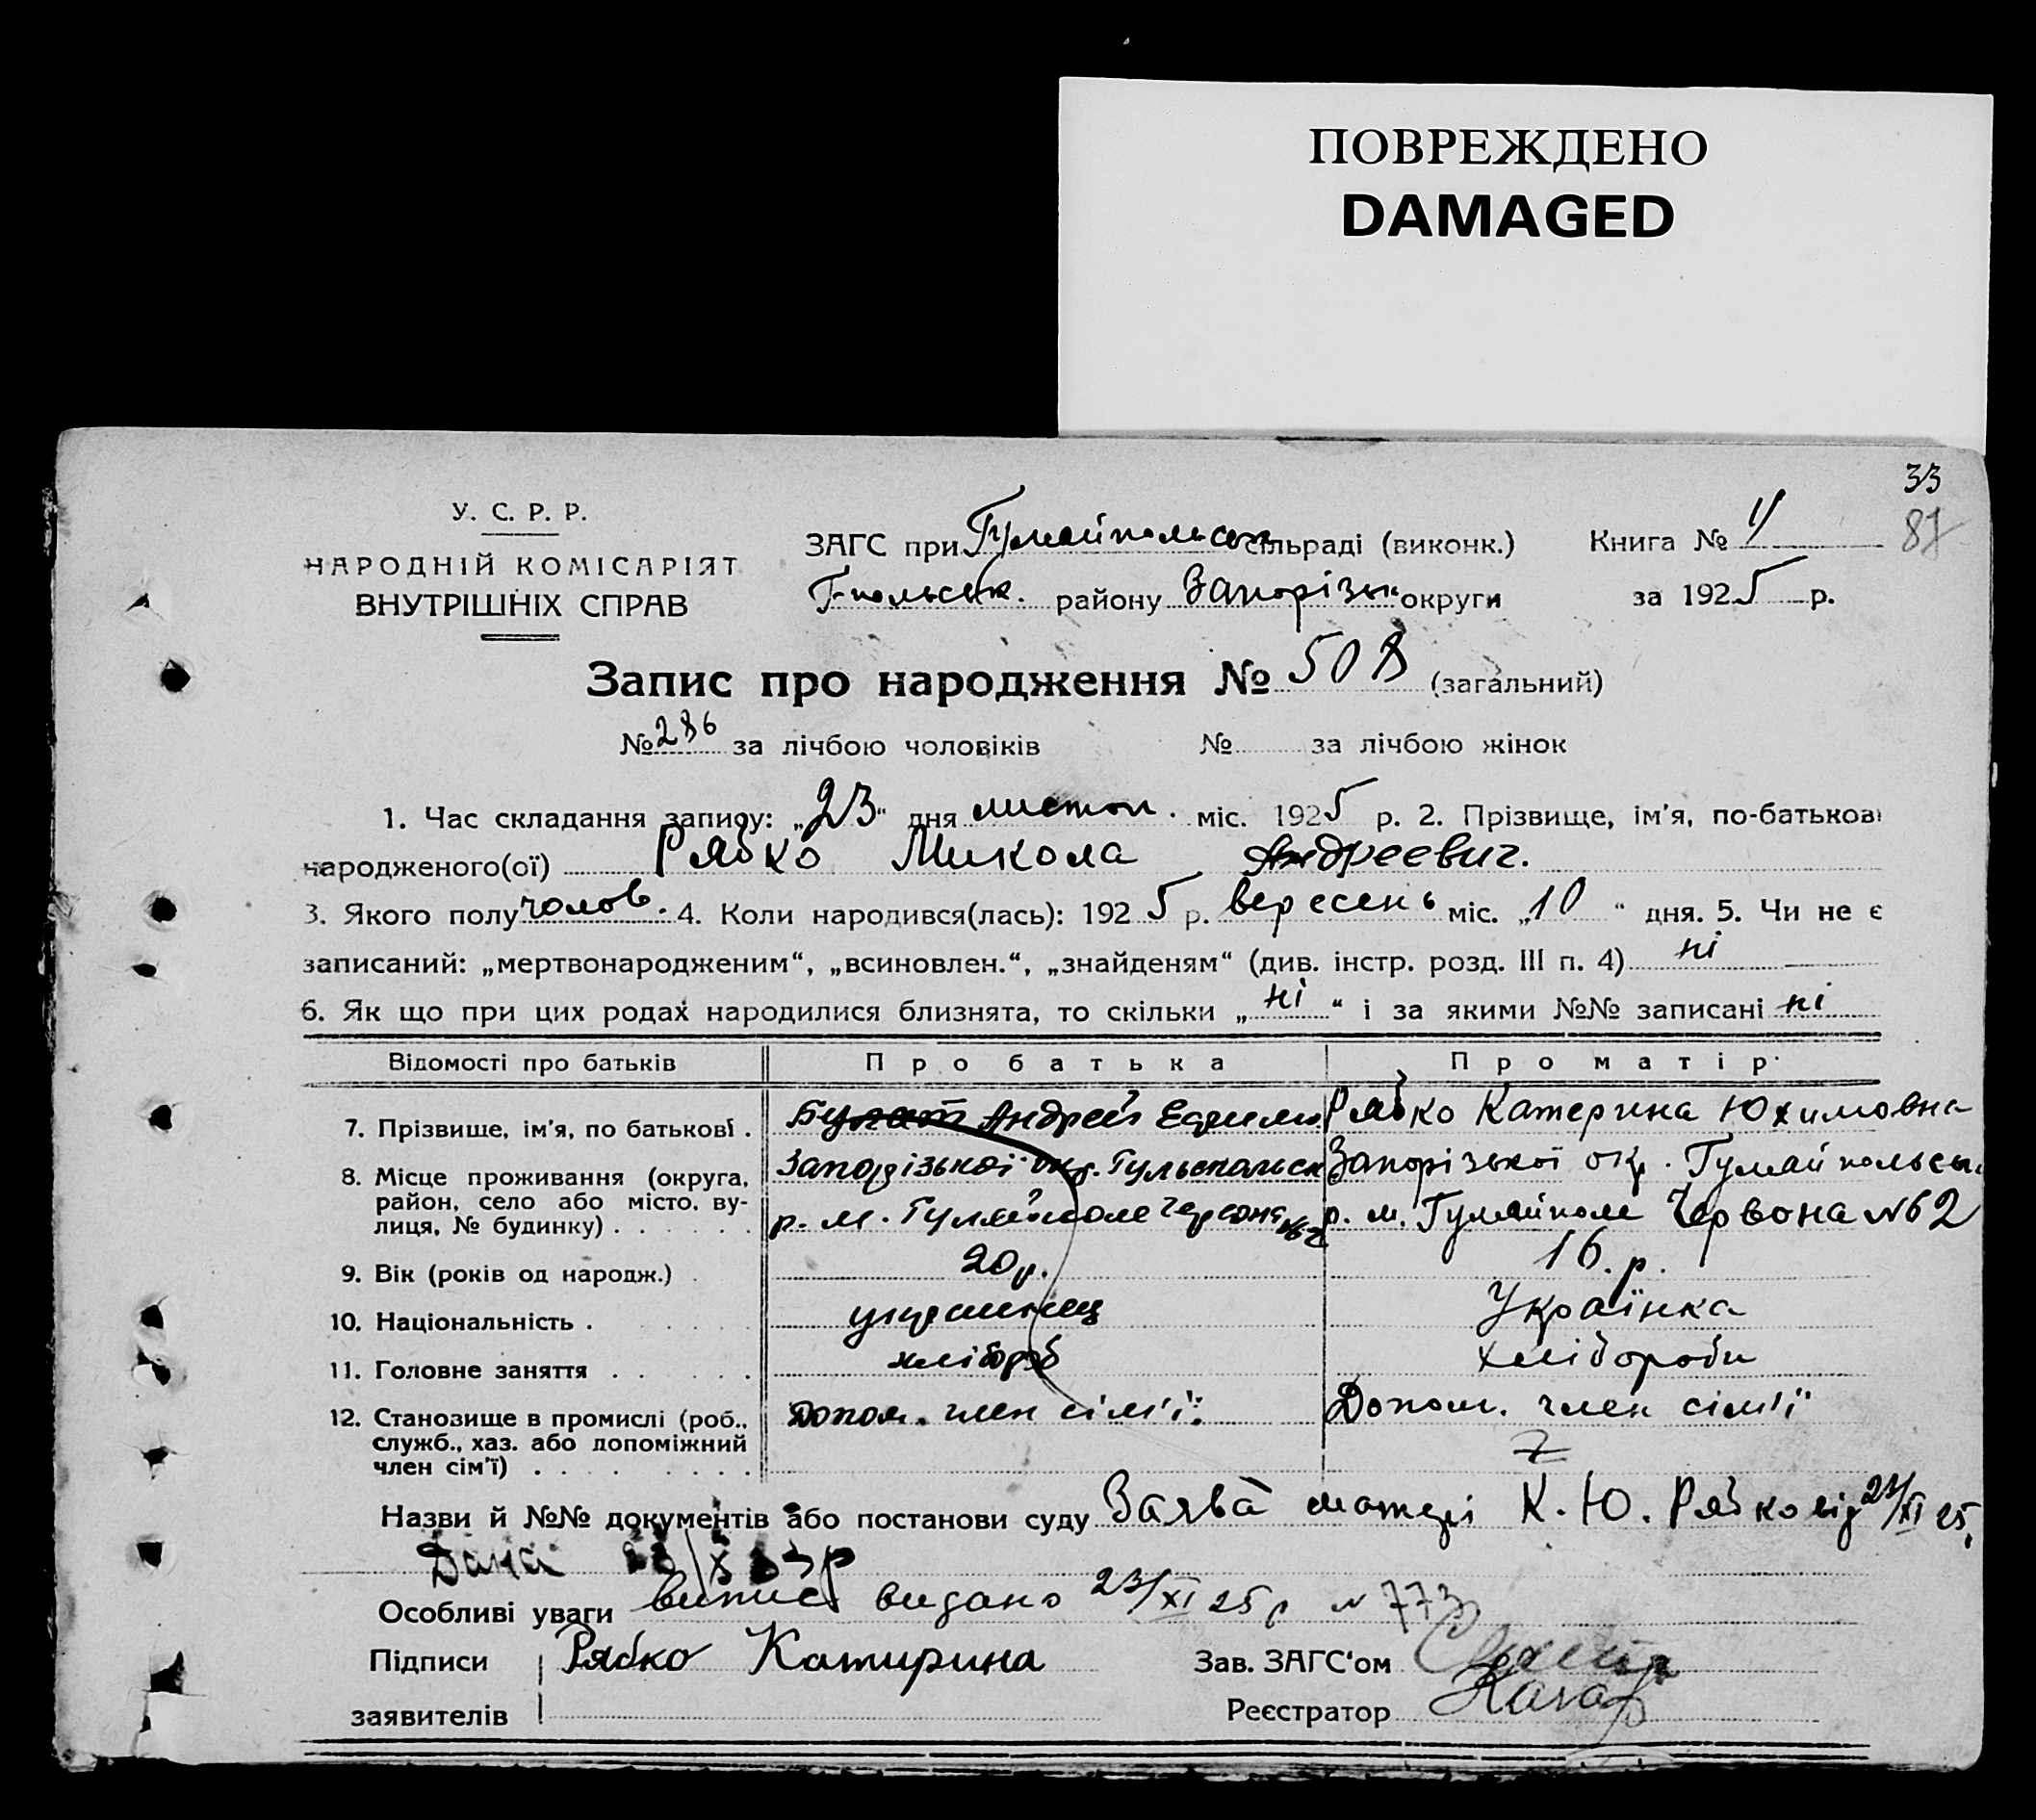 ПОВРЕЖДЕНО
DAMAGED
33
87
У. С. Р. Р.
НАРОДНІЙ КОМІСАРІЯТ
ВНУТРІШНІХ СПРАВ
ЗАГС при Гуляйпольськ сільраді (виконк.) Книга №
Г-польськ. району Запорізьк округи за 1925 р.
Запис про народження № 508 (загальний)
№ 286 за лічбою чоловіків № за лічбою жінок
1. Час складання запису: „23" дня листоп. міс. 1925 р. 2. Прізвище, ім'я, по-батькові
народженого(ої) Рябко Микола Андреевич.
3. Якого полу чолов. 4. Коли народився(лась): 1925 р. вересень міс. „10" дня. 5. Чи не є
записаний: „мертвонародженим", „всиновлен.", „знайденям" (див. інстр. розд. III п. 4) ні
6. Як що при цих родах народилися близнята, то скільки „ні" і за якими №№ записані ні
Відомості про батьків Про батька Про матір
7. Прізвище, ім'я, по батькові . Андрей Рябко Катерина Юхимовна
8. Місце проживання (округа, район, село або місто, вулиця, № будинку) . Запорізької окр. Гульспальск Запорізької окр. Гуляйпольськ.
р. м. Гуляйполе Червона №62 р. м. Гуляйполе Червона №62
9. Вік (років од народж.) . 20 р. 16. р.
10. Національність . украинец Українка
11. Головне заняття . хлібороб хлібороби
12. Становище в промислі (роб., служб., хаз. або допоміжний член сім'ї) . Допом. член сім'ї. Допом. член сім'ї
Назви й №№ документів або постанови суду Заява матері К. Ю. Рябко від 23/XI 25.
Дана
Особливі уваги випис видано 23/XI 25 р № 773
Підписи Рябко Катирина Зав. ЗАГС'ом
заявителів Реєстратор